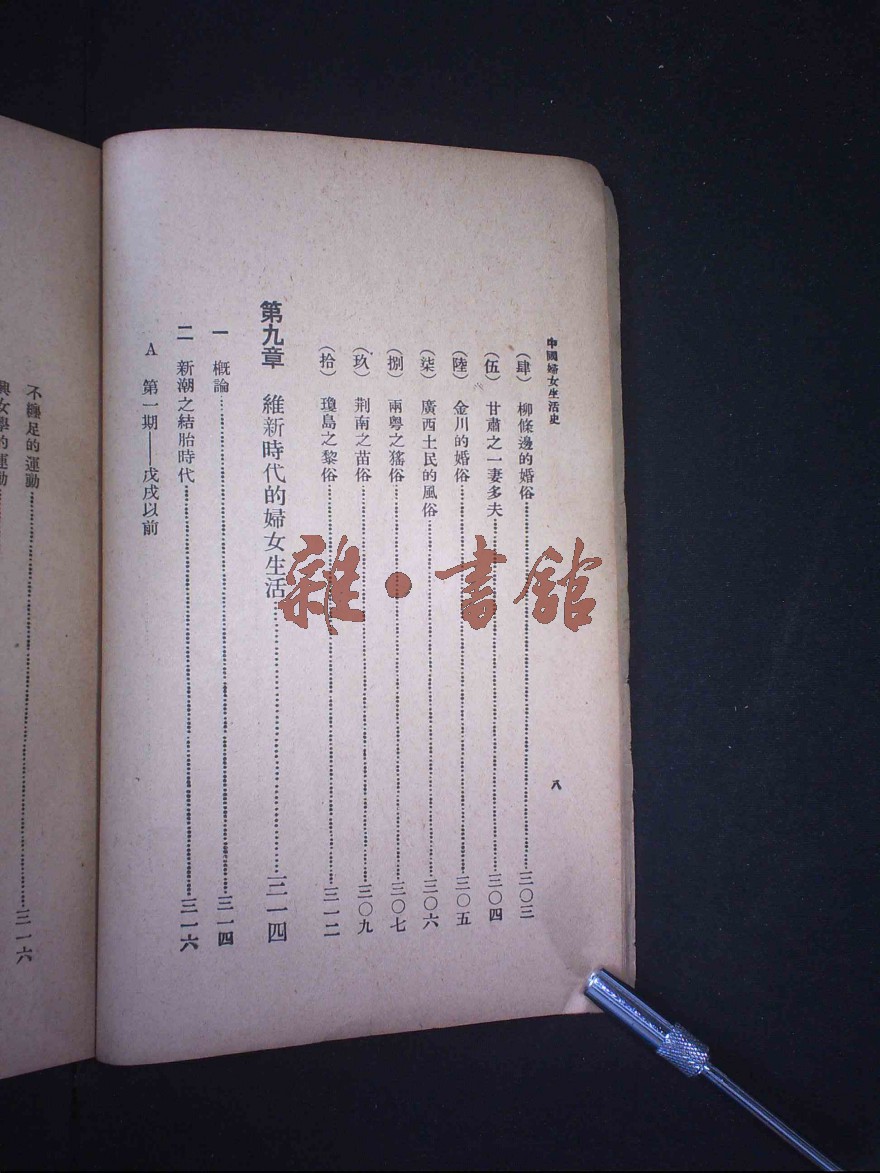 中國婦女生活史
八
（肆） 柳條邊的婚俗……三〇三
（伍） 甘肅之一妻多夫……三〇四
（陸） 金川的婚俗……三〇五
（柒） 廣西土民的風俗……三〇六
（捌） 兩粵之猺俗……三〇七
（玖） 荆南之苗俗……三〇九
（拾） 瓊島之黎俗……三一二
第九章 維新時代的婦女生活……三一四
一 概論……三一四
二 新潮之結胎時代……三一六
A 第一期——戊戌以前
不纏足的運動……三一六
興女學的運動
雜·書館